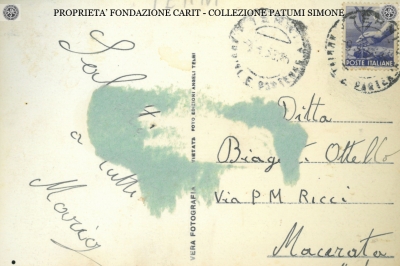 PROPRIETA' FONDAZIONE CARIT - COLLEZIONE PATUMI SIMONE
POSTE ITALIANE
Saluti
a tutti
Mario
VERA FOTOGRAFIA
FOTO EDIZIONI ANGELI TERNI
Ditta
Biagetti Ottello
Via P M Ricci
Macerata